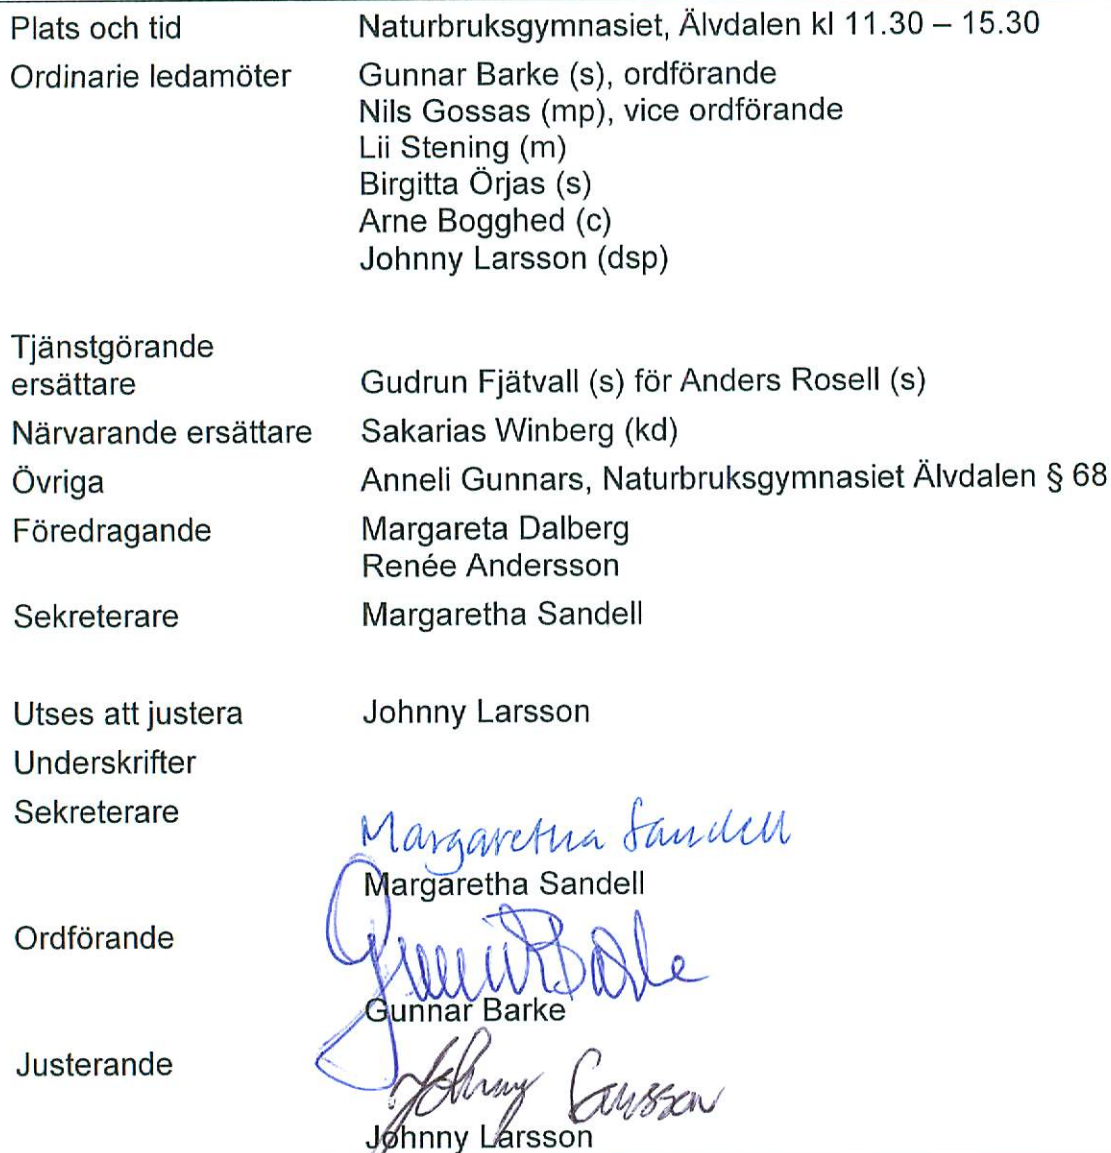 Plats och tid Naturbruksgymnasiet, Älvdalen kl 11.30 – 15.30
Ordinarie ledamöter Gunnar Barke (s), ordförande
Nils Gossas (mp), vice ordförande
Lii Stening (m)
Birgitta Örjas (s)
Arne Bogghed (c)
Johnny Larsson (dsp)
Tjänstgörande
ersättare Gudrun Fjätvall (s) för Anders Rosell (s)
Närvarande ersättare Sakarias Winberg (kd)
Övriga Anneli Gunnars, Naturbruksgymnasiet Älvdalen § 68
Föredragande Margareta Dalberg
Renée Andersson
Sekreterare Margaretha Sandell
Utses att justera Johnny Larsson
Underskrifter
Sekreterare Margaretha Sandell
Margaretha Sandell
Ordförande Gunnar Barke
Gunnar Barke
Justerande Johnny Larsson
Johnny Larsson